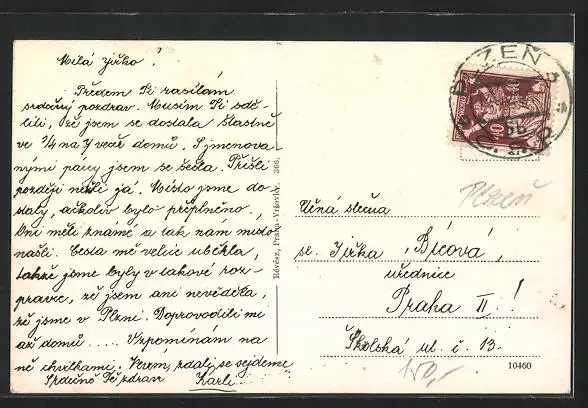 Milá Jiřko!
Předem Ti zasílám
srdečný pozdrav. Musím Ti sdě-
liti, že jsem se dostala šťastně
ve 3/4 na 7 večer domů. S jmenova-
nými pány jsem se sešla. Přišli
později než já. Místo jsme do-
staly, ačkoliv bylo přeplněno.
Oni měli známé a tak nám místo
našli. Cesta mě velice uběhla,
takže jsme byly v takové roz-
pravce, že jsem ani nevěděla,
že jsme v Plzni. Doprovodili mi
až domů ..... Vzpomínám na
ně chvilkami. zdali se sejdeme
Srdečně Tě zdraví Karli.
Révész, Praha-Vršovice. 366.
PLZEŇ
Plzeň
Ctěná slečna
sl. Jiřka Bícová,
úřednice
Praha II!
Školská ul. č. 13.
10460
150,-